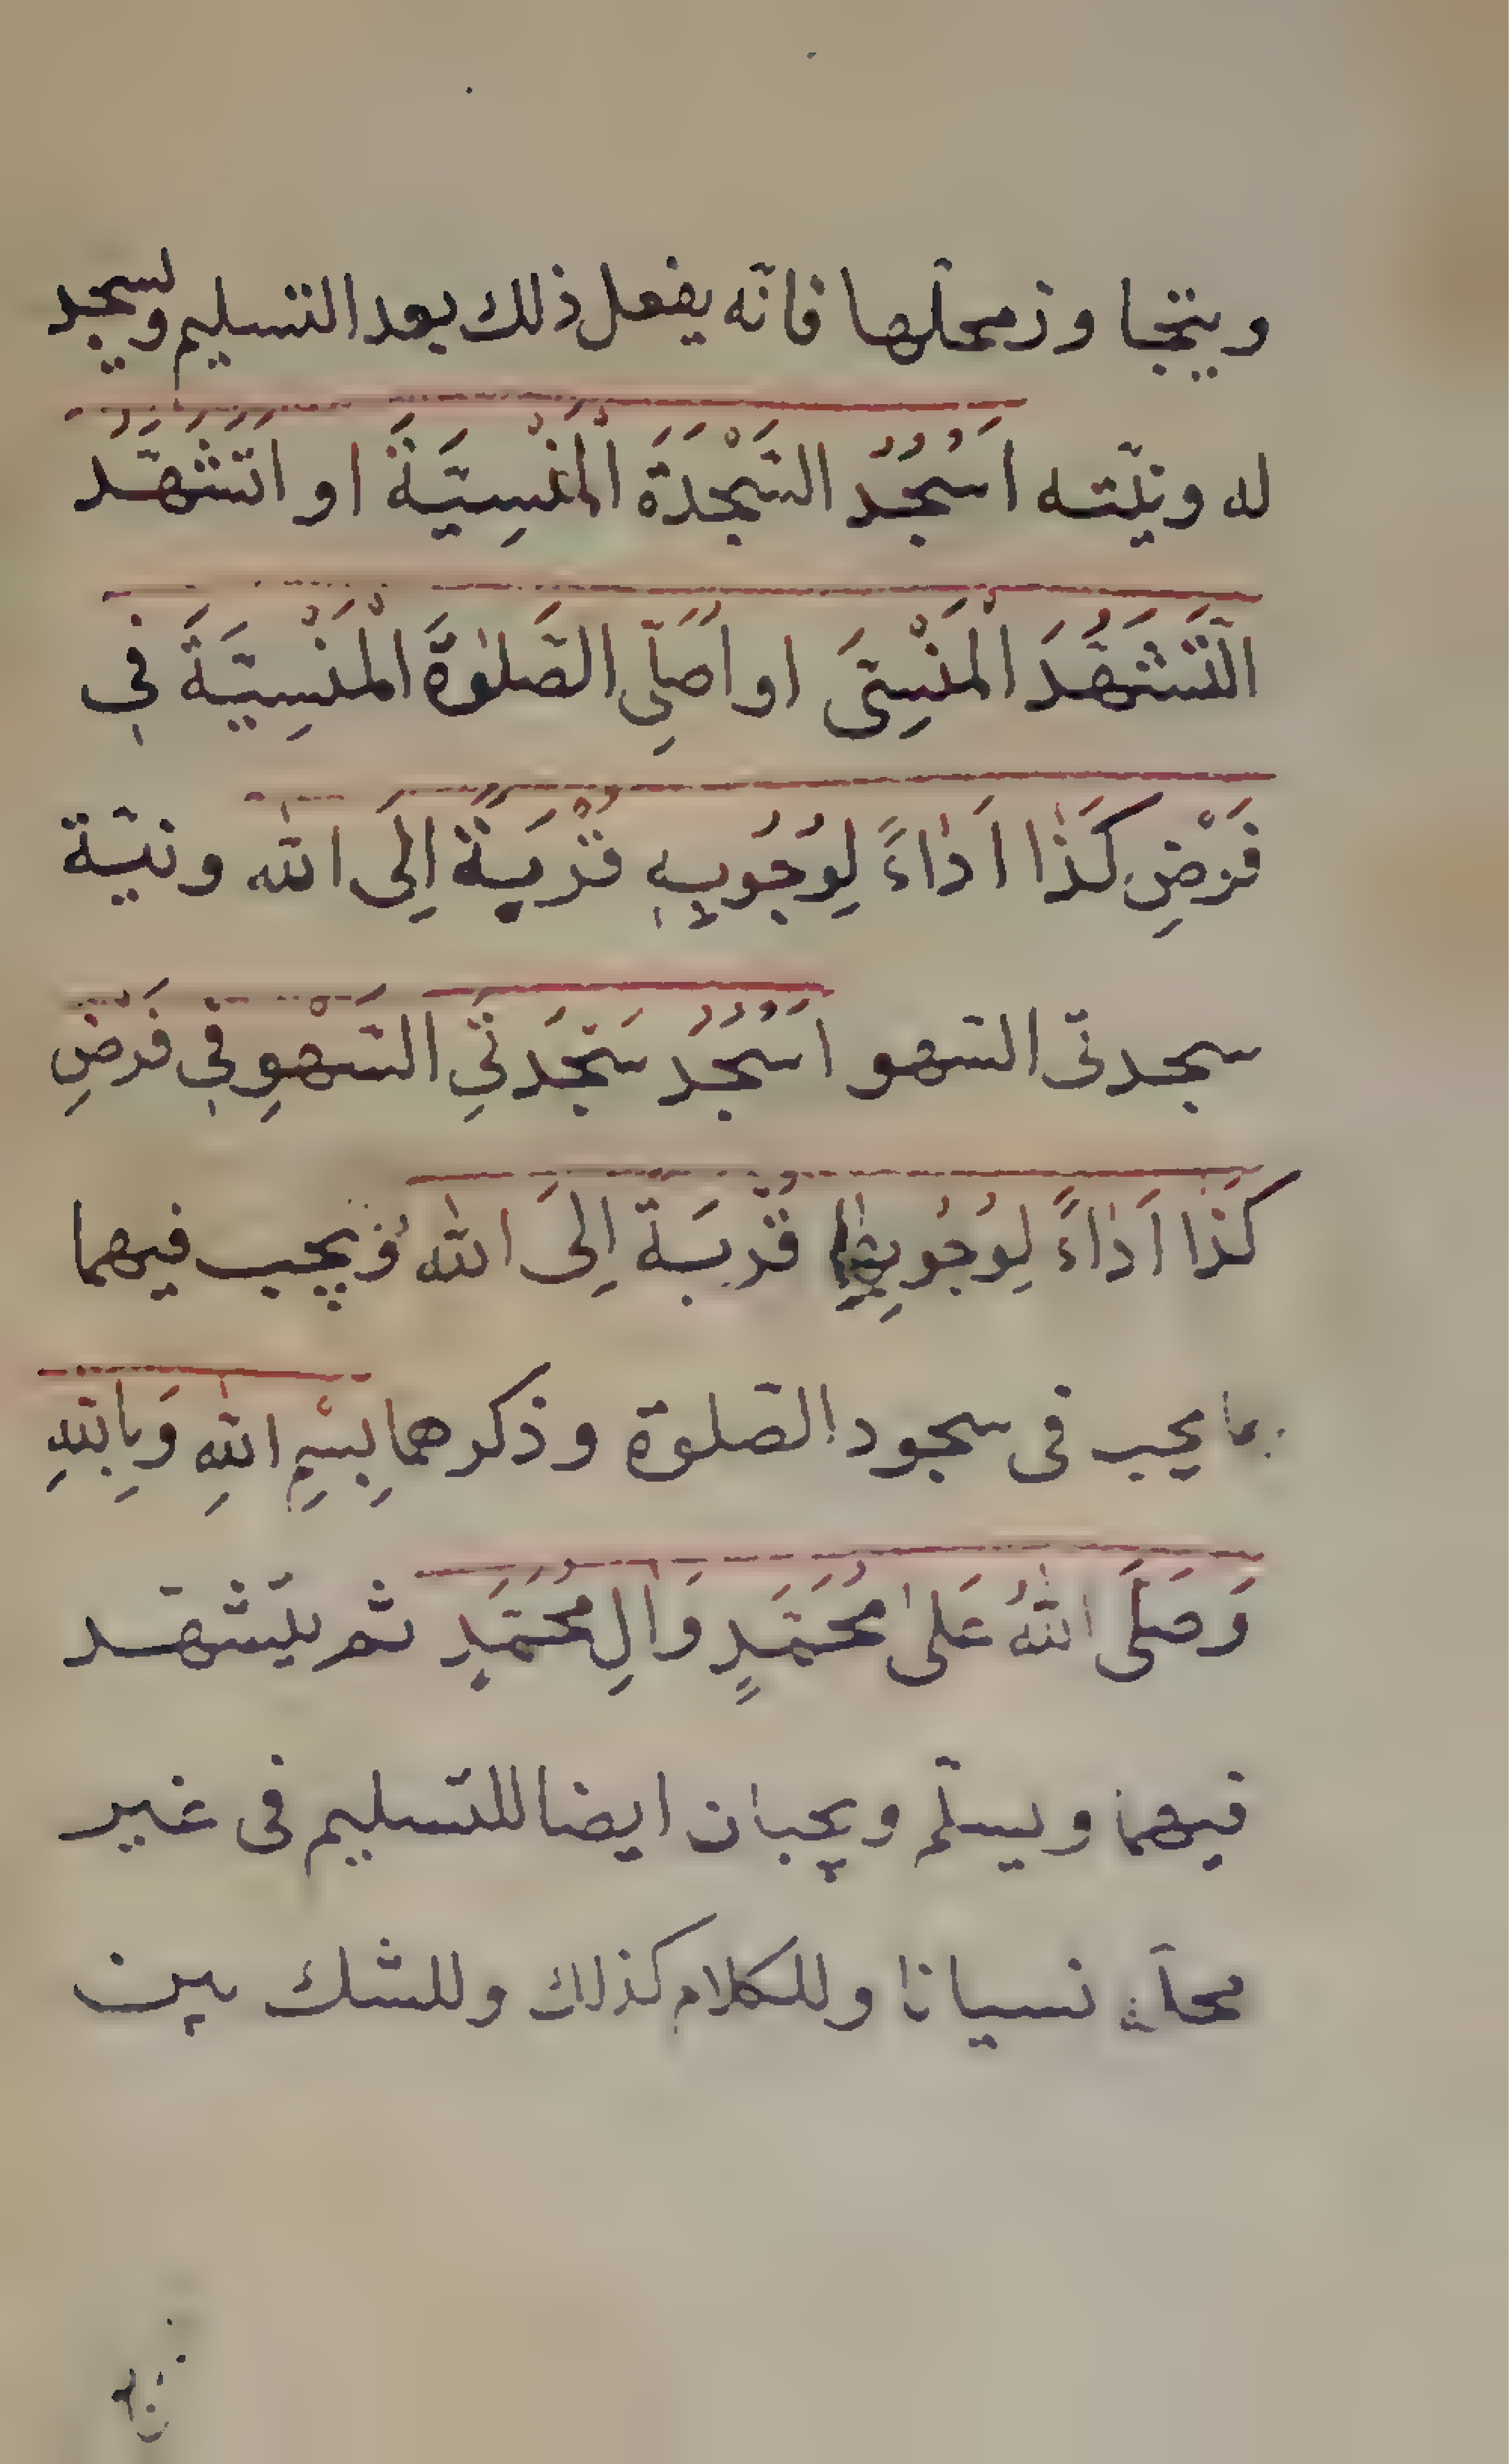 ويتجاوز محلّها فانّه يفعل ذلك بعد التسليم ويسجد
له ونيّته اَسْجُدُ السَّجْدَةَ الْمَنْسِيَّةَ او اَتَشَهَّدُ
التَّشَهُّدَ الْمَنْسِيَّ او اُصَلِّي الصَّلوٰةَ الْمَنْسِيَّةَ فِي
فَرْضِ كَذٰا اَدٰاءً لِوُجُوبِهِ قُرْبَةً اِلَى اللّٰه ونيّة
سجدتى السّهو اَسْجُدُ سَجْدَتَيِ السَّهْوِ فِي فَرْضِ
كَذٰا اَدٰاءً لِوُجُوبِهِمٰا قُرْبَةً اِلَى اللّٰه ويجب فيهما
ما يجب فى سجود الصّلوة وذكرهما بِسْمِ اللّٰهِ وَبِاللّٰهِ
وَصَلَّى اللّٰهُ عَلىٰ مُحَمَّدٍ وَاٰلِ مُحَمَّدٍ ثم يتشهّد
فيهما ويسلّم ويجبان ايضا للتّسليم فى غير
محلّه نسيانا وللكلام كذلك وللشك بين